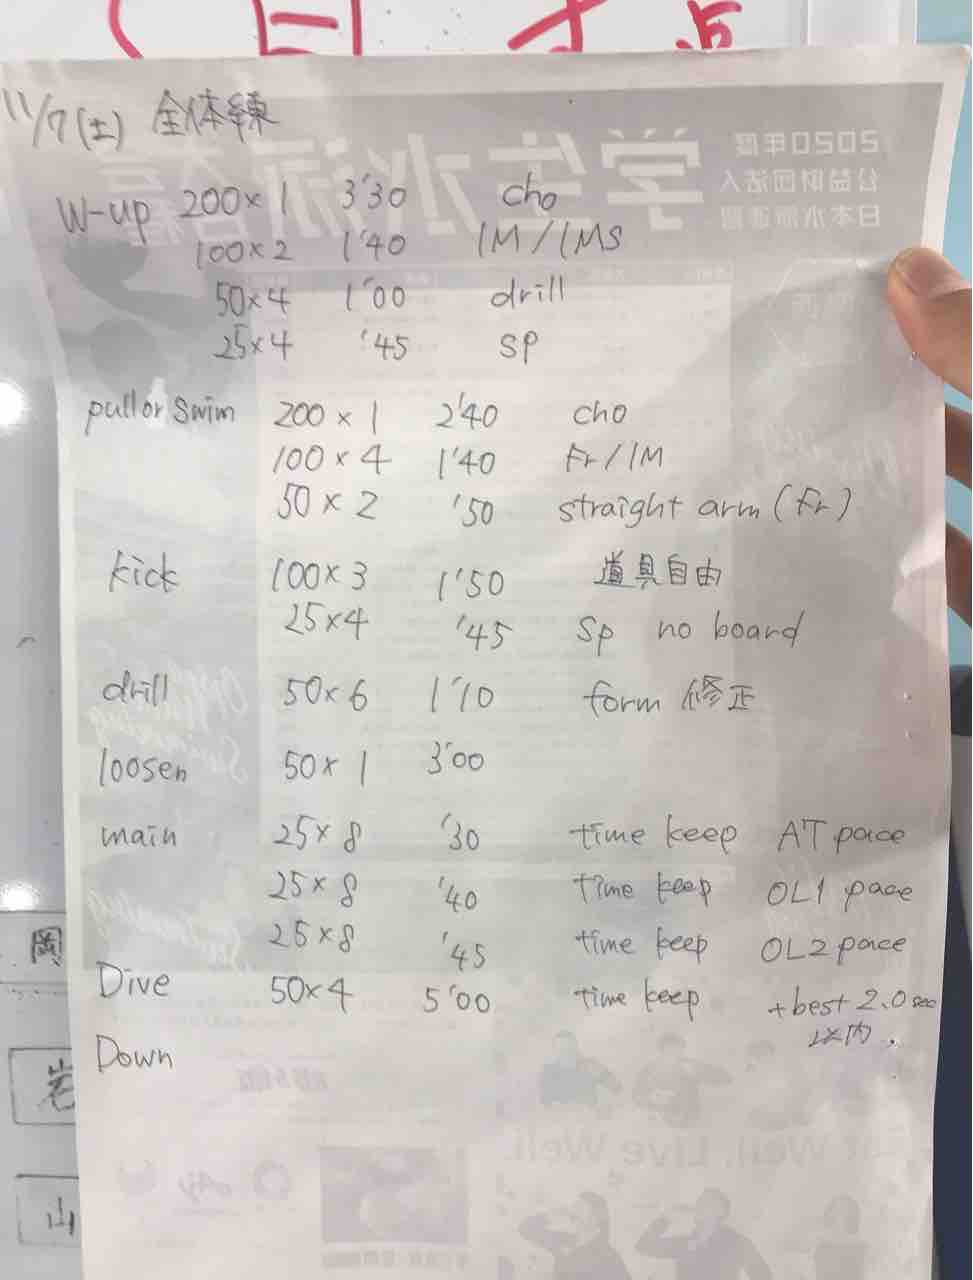 11/7(土) 全体練
W-up 200×1 3'30 cho
100×2 1'40 IM/IMS
50×4 1'00 drill
25×4 '45 sp
pull or swim 200×1 2'40 cho
100×4 1'40 Fr/IM
50×2 '50 straight arm (Fr)
kick 100×3 1'50 道具自由
25×4 '45 sp no board
drill 50×6 1'10 form 修正
loosen 50×1 3'00
main 25×8 '30 time keep AT pace
25×8 '40 time keep OL1 pace
25×8 '45 time keep OL2 pace
Dive 50×4 5'00 time keep +best 2.0 sec
以内.
Down
岩
山